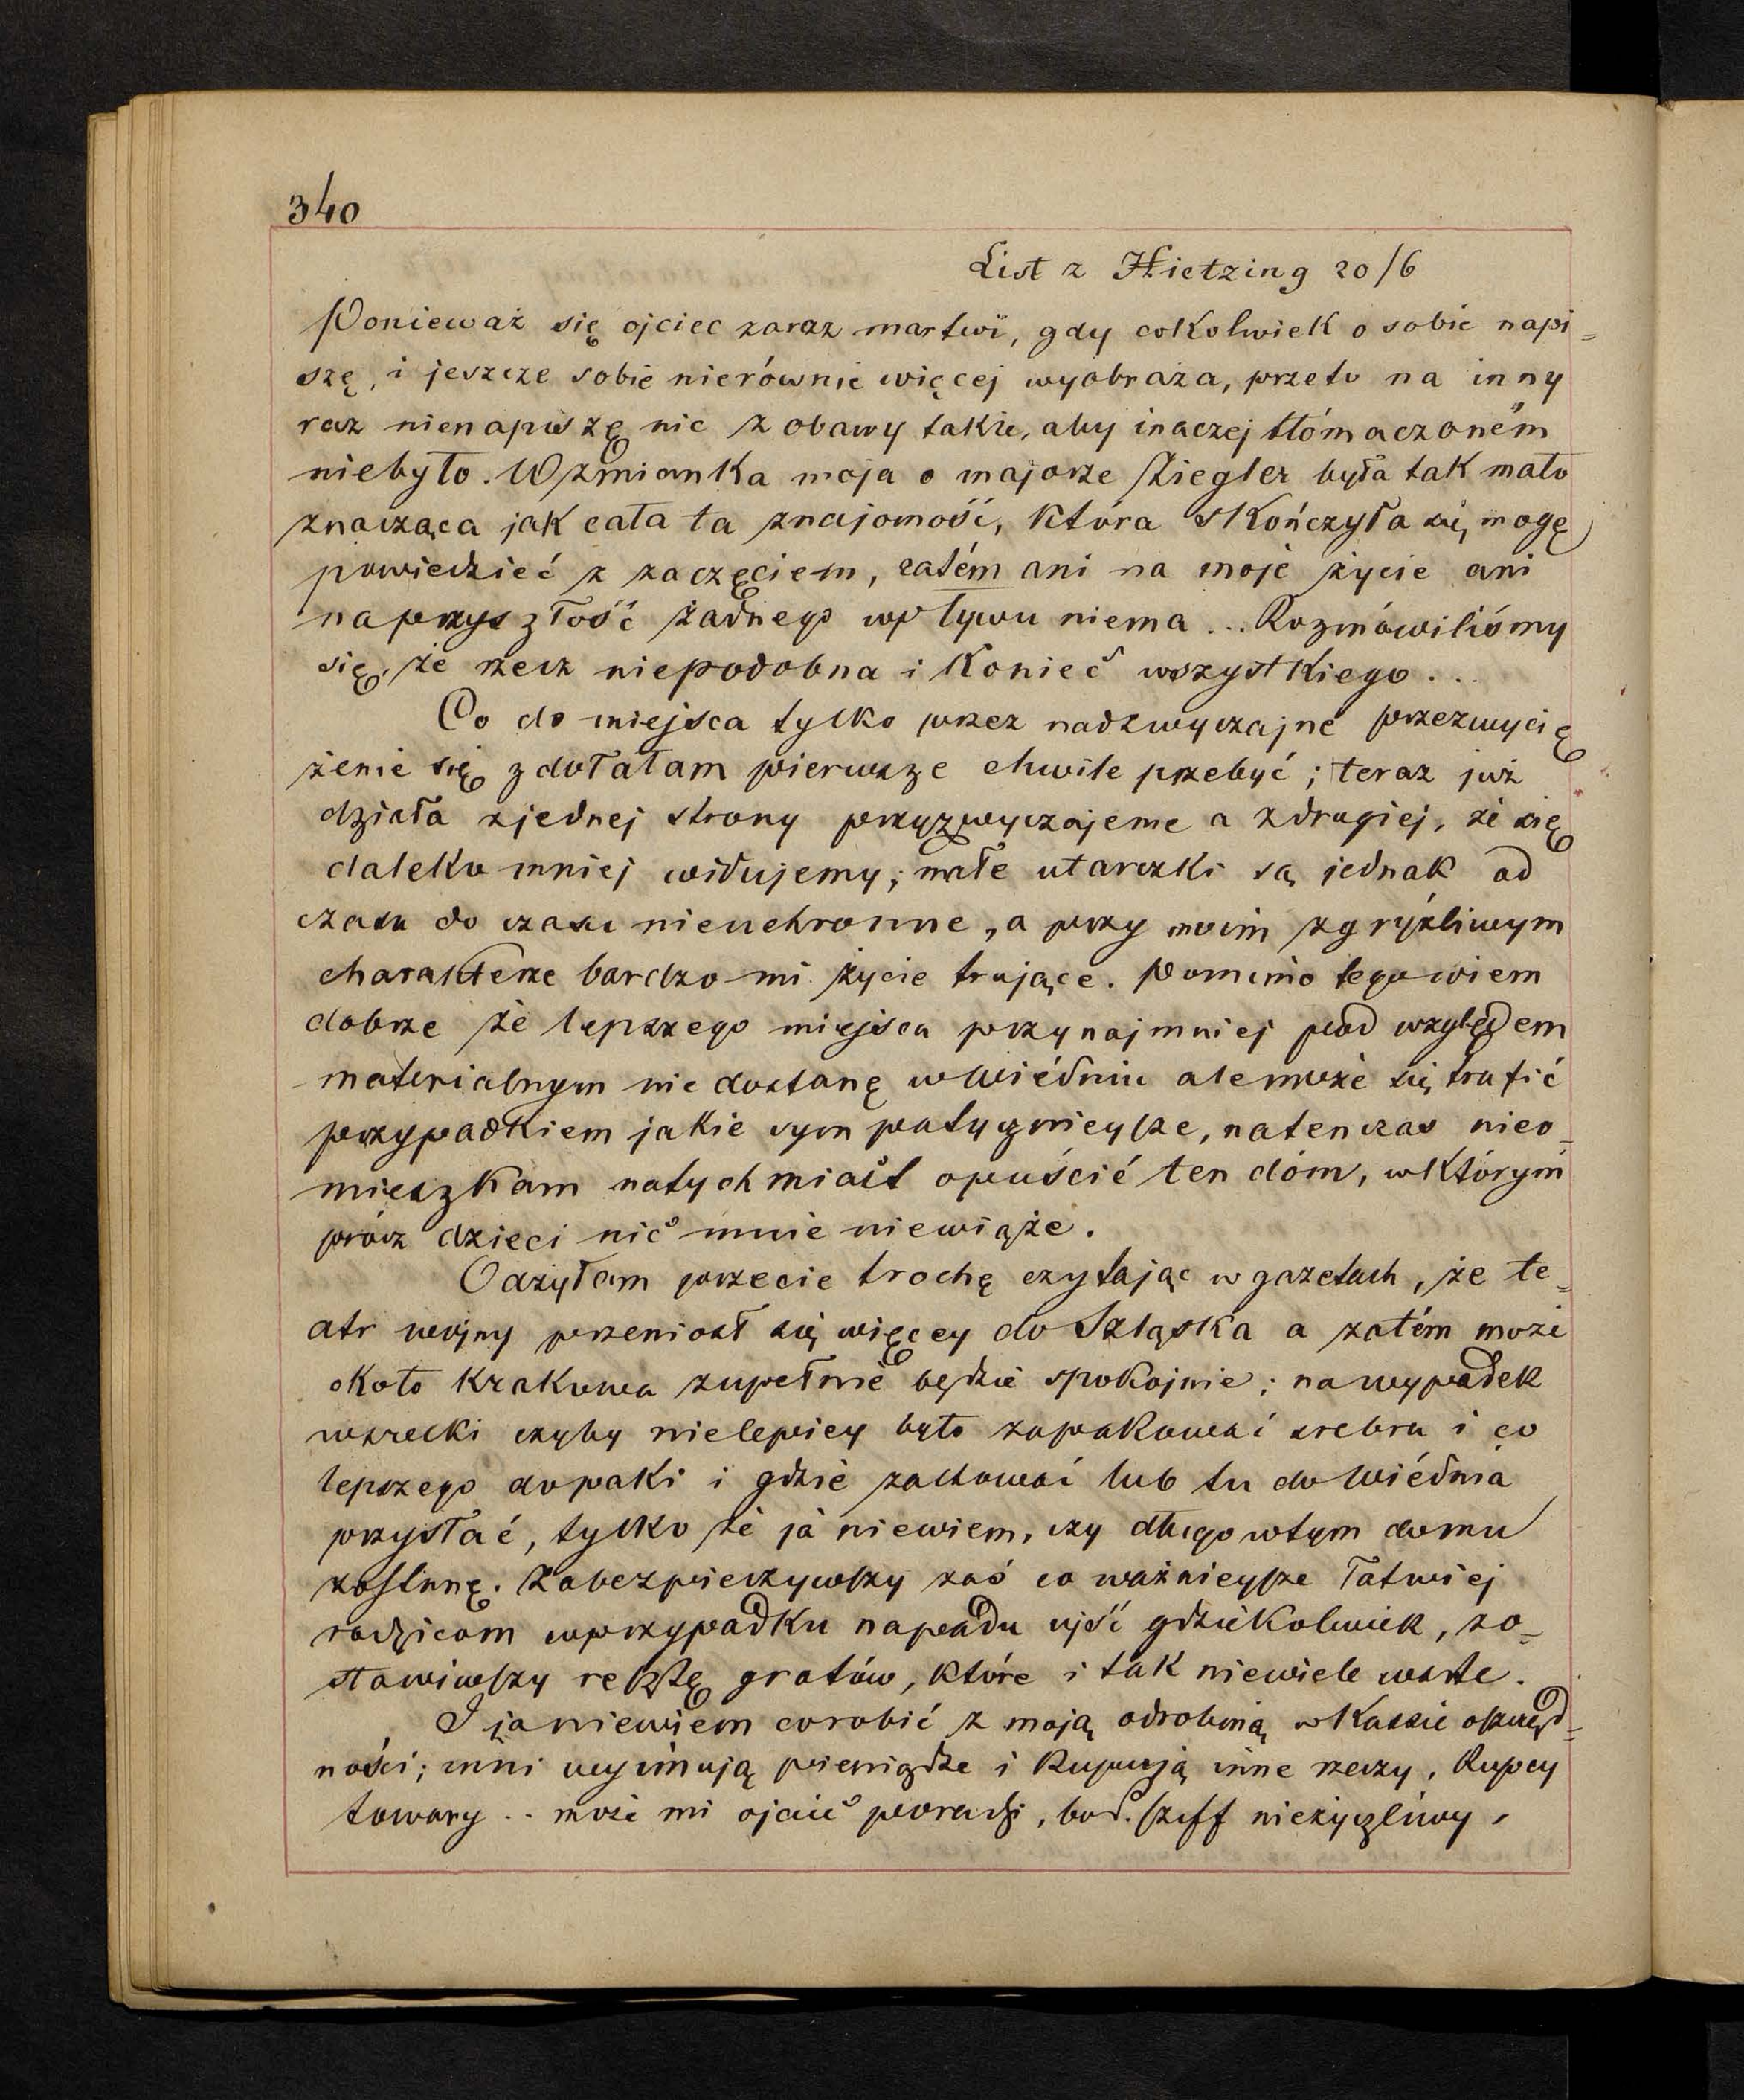 340
List z Hietzing 20/6
Ponieważ się ojciec zaraz martwi, gdy cokolwiek o sobie napi=
szę, i jeszcze sobie nierównie więcej wyobraża, przeto na inny
raz nienapiszę nic z obawy także, aby inaczej tłómaczoném
niebyło. Wzmianka moja o majorze Ziegler była tak mało
znacząca jak cała ta znajomość, która skończyła się mogę
powiedzieć z zaczęciem, zatém ani na moje życie ani
na przyszłość żadnego wpływu niema... Rozmówiliśmy
się, że rzecz niepodobna i koniec wszystkiego...
Co do miejsca tylko przez nadzwyczajne przezwycię
żenie się zdołałam pierwsze chwile przebyć; teraz już
działa zjednej strony przyzwyczajenie a zdrugiej, że się
daleko mniej widujemy; małe utarczki są jednak od
czasu do czasu nieuchronne, a przy moim zgryźliwym
charakterze bardzo mi życie trujące. Pomimo tego wiem
dobrze że lepszego miejsca przynajmniej pod względem
materialnym nie dostanę w Wiédniu ale może się trafić
przypadkiem jakie sympatyczniejsze, natenczas nieo=
mieszkam natychmiast opuścić ten dóm, w którym
prócz dzieci nic mnie niewiąże.
Odżyłam przecie trochę czytając w gazetach, że te=
atr wojny przeniosł się więcey do Szląska a zatém może
około Krakowa zupełnie będzie spokojnie; na wypadek
wszelki czyby nielepiey było zapakować srebra i co
lepszego do paki i gdzie zachować lub tu do Wiédnia
przysłać, tylko że ja niewiem, czy długo w tym domu
zostanę. Zabezpieczywszy zaś co ważnieysze łatwiej
rodzicom w przypadku napadu ujść gdziekolwiek, zo=
stawiwszy resztę gratów, które i tak niewiele warte.
I ja niewiem co robić z moją odrobiną w Kassie oszczęd=
ności; inni wyimują pieniądze i kupują inne rzeczy, kupcy
towary .. może mi ojciec poradzi, bo d. Schiff nieżyczliwy,